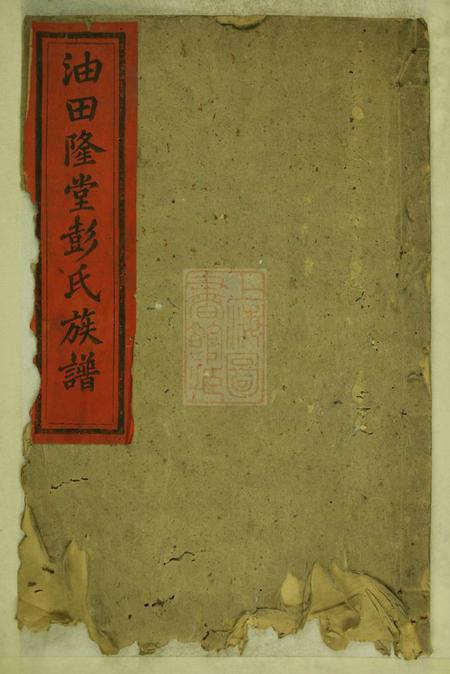 油田隆堂彭氏族譜
上海圖
書館臧